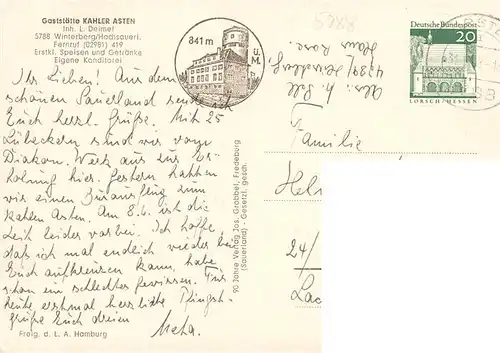 Gaststätte KAHLER ASTEN
Inh. L. Deimel
5788 Winterberg/Hochsauerl.
Fernruf (02981) 419
Erstkl. Speisen und Getränke
Eigene Konditorei
841 m ü. M.
Deutsche Bundespost
20
LORSCH/HESSEN
Ihr Lieben! Aus dem
schönen Sauerland sende ich
Euch herzl. Grüße. Mit 25
Lübeckern sind wir vom
Diakon. Werk aus zur Er-
holung hier. Gestern hatten
wir einen Busausflug zum
kahlen Asten. Am 8.6. ist die
Zeit leider vorbei. Ich hoffe,
daß ich mal endlich wieder bei
Euch aufkreuzen kann, habe
schon ein schlechtes Gewissen. Für
heute erstmal herzliche Pfingst-
grüße Euch dreien
Meta.
Freig. d. L. A. Hamburg
90 Jahre Verlag Jos. Grobbel, Fredeburg
(Sauerland) - Gesetzl. gesch.
Abs.:
Haus
Familie
24/